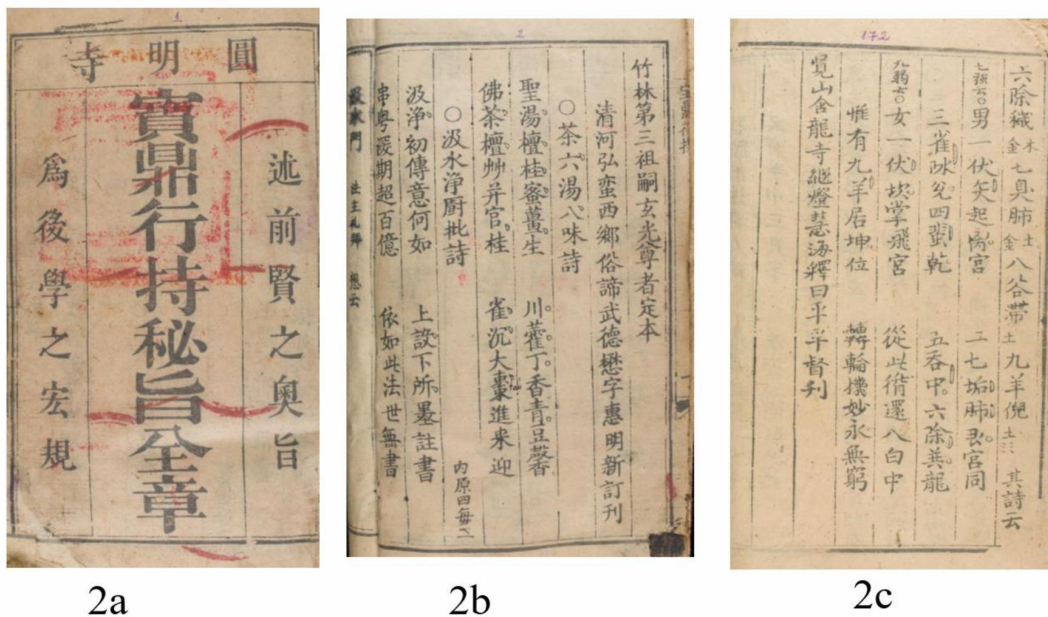 1
圓明寺
述前賢之奥旨
寳鼎行持秘旨全章
爲後學之宏規
2a
2
竹林第三祖嗣玄光尊者定本
清河弘蛮西鄉俗諦武德懋字惠明新訂刊
○茶六湯八味詩
聖湯檀桂蜜薑生 川藿丁香青豆馨
佛茶檀艸并官桂 雀沉大棗進来迎
○汲水淨厨批詩
汲淨初傳意何如 上設下所墨註書
依如此法世無書
2b
172
六除穢木金七臭肺土金八谷帶土九羊倪土 其詩云
男一伏 起 宮 二七垢肺 宮同
三雀 兊四 乾 五吞中六除 龍
女一伏坎掌飛宮 從此 還八白中
惟有九羊居坤位 轉輪機妙永無窮
覓山金龍寺継燈慧海釋曰平平督刊
2c